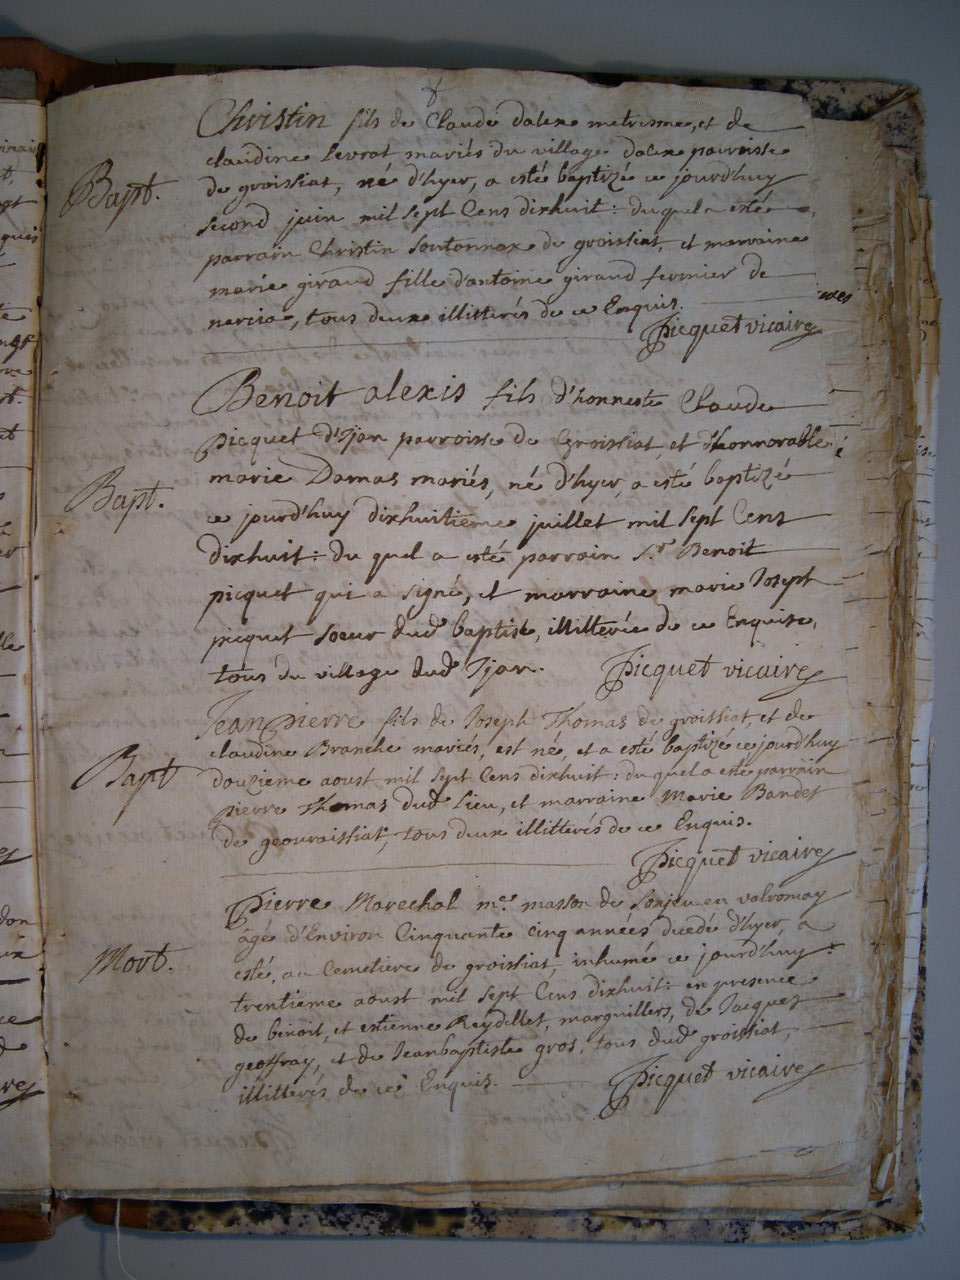 Bapt.
Christin fils de Claude dalex et de
claudine levrat mariés du village dalex parroisse
de groissiat, né d'hyer, a esté baptizé ce jourd'huy
second juin mil sept Cens dixhuit : duquel a esté
parrain Christin soutonnax de groissiat, et marraine
marie giraud fille d'antoine giraud fermier de
nercia, tous deux illitterés de ce Enquis.
Picquet vicaire
Bapt.
Benoit alexis fils d'honneste Claude
picquet d'Ijan parroisse de Groissiat, et d'honnorable
marie Damas mariés, né d'hyer, a esté baptizé
ce jourd'huy dixhuitieme juillet mil sept Cens
dixhuit : du quel a esté parrain Sr. Benoit
picquet qui a signé, et marraine marie Joseph
picquet soeur dud. baptisé, illitterée de ce Enquise,
tous du village dud. Ijan.
Picquet vicaire
Bapt
Jean pierre fils de Joseph Thomas de groissiat, et de
claudine Branche mariés, est né, et a esté baptizé ce jourd'huy
douzieme aoust mil sept Cens dixhuit : du quel a esté parrain
pierre Thomas dud. lieu, et marraine Marie Bandet
de geovraissiat, tous deux illitterés de ce Enquis.
Picquet vicaire
Mort.
Pierre Marechal me. masson de Sonjeu en valromay
âgé d'Environ Cinquante cinq années decedé d'hyer, a
esté, au Cemetiere de groissiat, inhumé ce jourd'huy
trentieme aoust mil sept Cens dixhuit : en presence
de benoit, et estienne Reydellet, marguillers, de Jacques
geoffray, et de Jeanbaptiste gros, tous dud. groissiat,
illitterés de ce Enquis.
Picquet vicaire